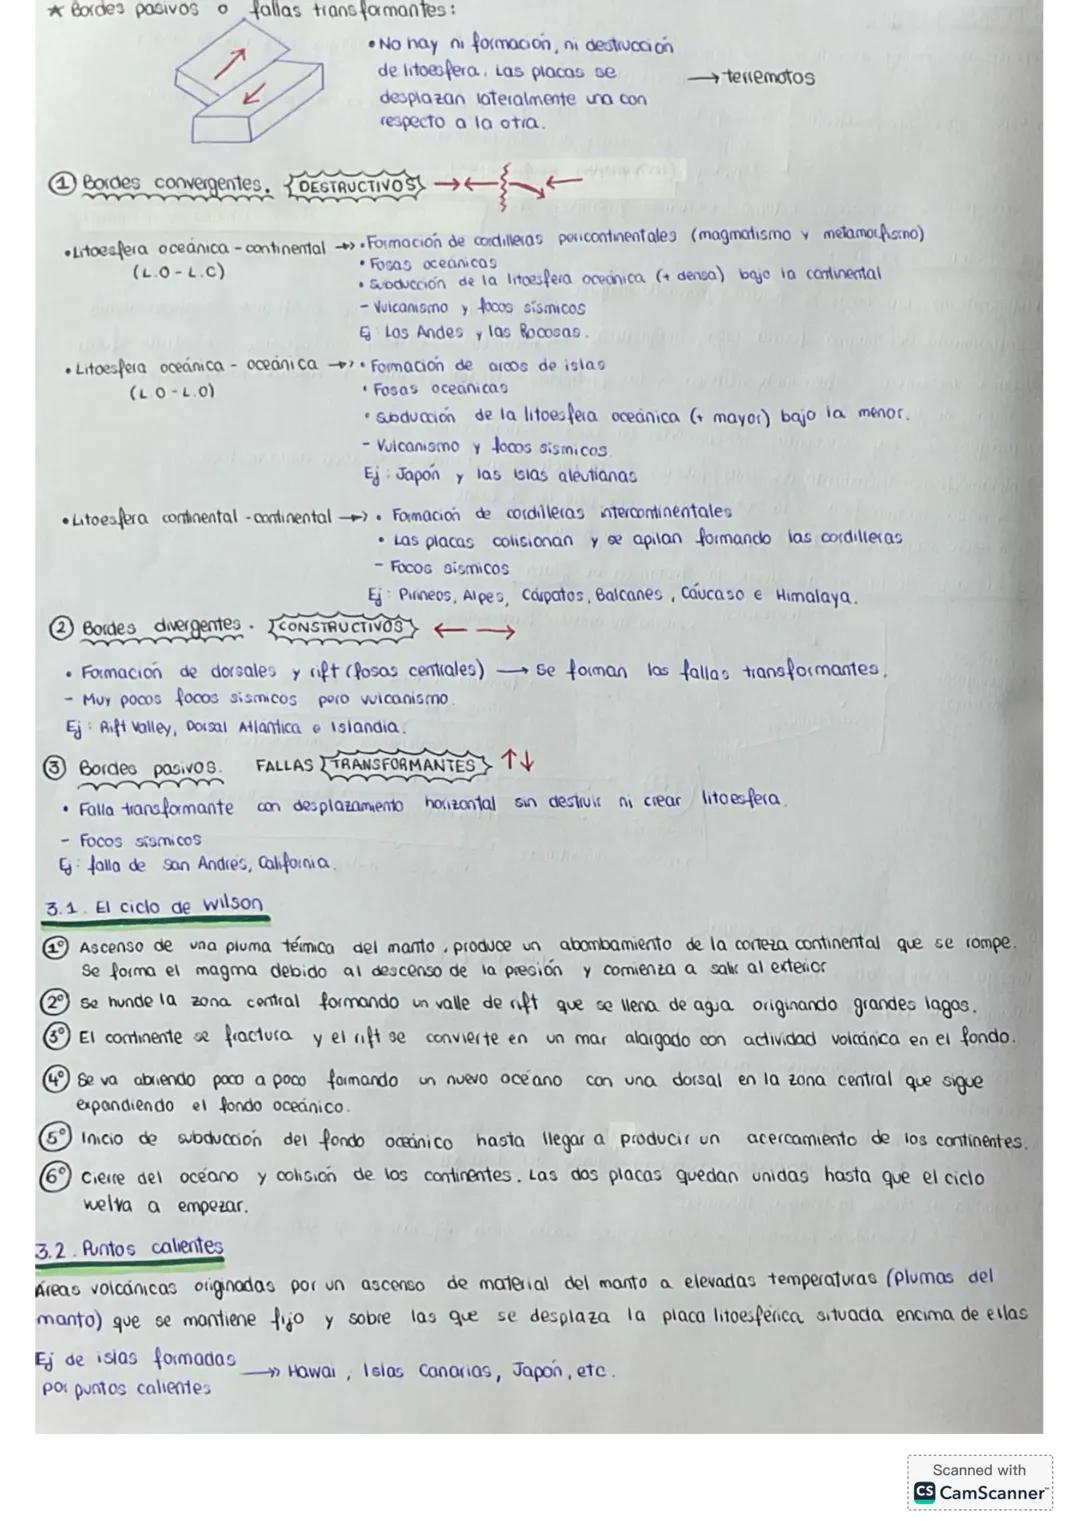 ★ Bordes pasivos o fallas transformantes:
• No hay ni formación, ni destrucción
de litoesfera. Las placas se → terremotos
desplazan lateralmente una con
respecto a la otra.
① Bordes convergentes. DESTRUCTIVOS
• Litoesfera oceánica - continental →› • Formación de cordilleras pericontinentales (magmatismo y metamorfismo)
(L.O - L.C) • Fosas oceánicas
• Subducción de la litoesfera oceánica (+ densa) bajo la continental
- Vulcanismo y focos sísmicos
Ej: Los Andes y las Rocosas.
• Litoesfera oceánica - oceánica →› • Formación de arcos de islas
(L.O - L.O) • Fosas oceánicas
• Subducción de la litoesfera oceánica (+ mayor) bajo la menor.
- Vulcanismo y focos sísmicos.
Ej: Japón y las islas aleutianas
• Litoesfera continental - continental →› • Formación de cordilleras intercontinentales
• Las placas colisionan y se apilan formando las cordilleras
- Focos sísmicos
Ej: Pirineos, Alpes, Cárpatos, Balcanes, Cáucaso e Himalaya.
② Bordes divergentes. CONSTRUCTIVOS ← →
• Formación de dorsales y rift (fosas centrales) → Se forman las fallas transformantes.
- Muy pocos focos sísmicos pero vulcanismo.
Ej: Rift Valley, Dorsal Atlántica e Islandia.
③ Bordes pasivos. FALLAS TRANSFORMANTES ↑↓
• Falla transformante con desplazamiento horizontal sin destruir ni crear litoesfera.
- Focos sísmicos
Ej: falla de San Andrés, California.
3.1. El ciclo de Wilson
1º Ascenso de una pluma térmica del manto, produce un abombamiento de la corteza continental que se rompe.
Se forma el magma debido al descenso de la presión y comienza a salir al exterior
2º Se hunde la zona central formando un valle de rift que se llena de agua originando grandes lagos.
3º El continente se fractura y el rift se convierte en un mar alargado con actividad volcánica en el fondo.
4º Se va abriendo poco a poco formando un nuevo océano con una dorsal en la zona central que sigue
expandiendo el fondo oceánico.
5º Inicio de subducción del fondo oceánico hasta llegar a producir un acercamiento de los continentes.
6º Cierre del océano y colisión de los continentes. Las dos placas quedan unidas hasta que el ciclo
vuelva a empezar.
3.2. Puntos calientes
Áreas volcánicas originadas por un ascenso de material del manto a elevadas temperaturas (plumas del
manto) que se mantiene fijo y sobre las que se desplaza la placa litoesférica situada encima de ellas
Ej de islas formadas →› Hawai, Islas Canarias, Japón, etc.
por puntos calientes
Scanned with
CS CamScanner